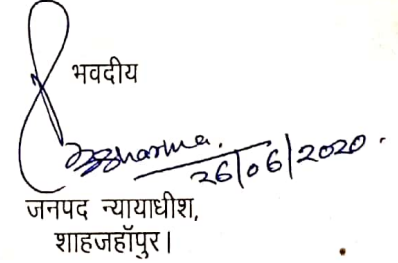 भवदीय
Sharma.
26/06/2020.
जनपद न्यायाधीश,
शाहजहाँपुर।